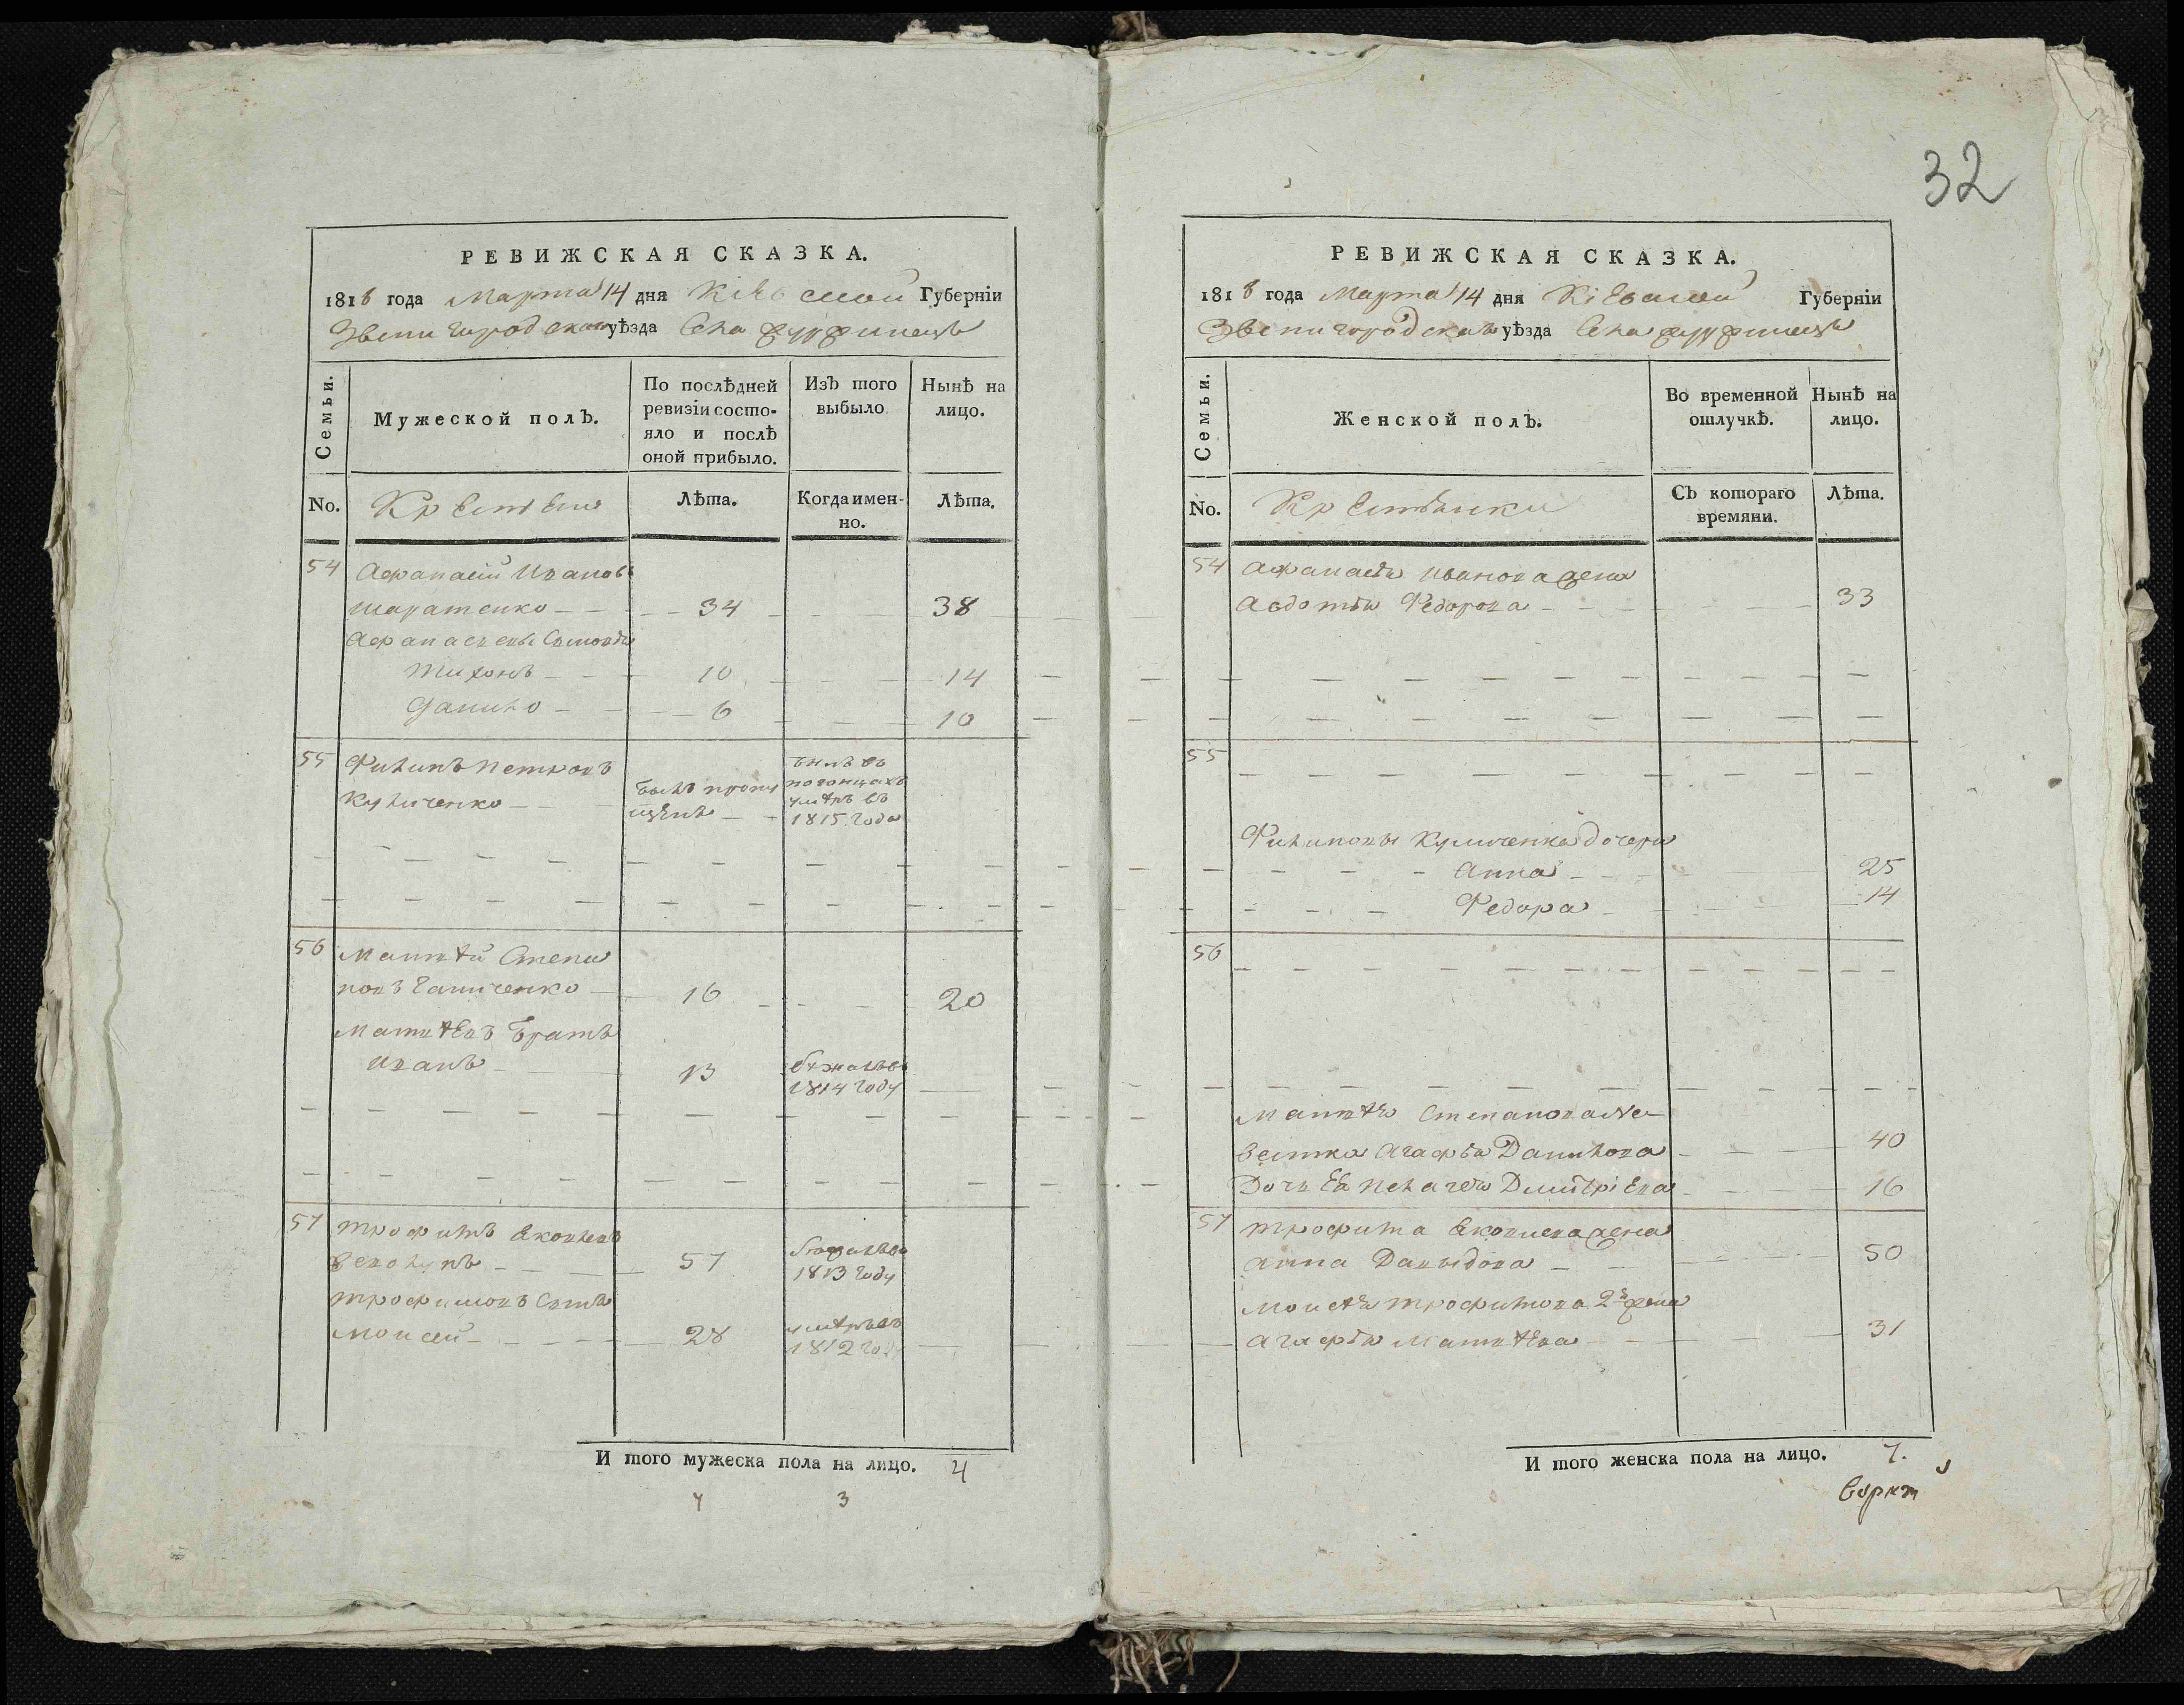 РЕВИЖСКАЯ СКАЗКА.
1818 года Марта 14 дня Кіевской Губерніи
Звенигородскаго уѣзда Села
Семьи.
Мужеской полъ.
По послѣдней ревизіи состо-
яло и послѣ
оной прибыло.
Изъ того
выбыло
Нынѣ на
лицо.
No.
Крестьяне
Лѣта.
Когда имен-
но.
Лѣта.
54 Афанасій Ивановъ
Шаратенко 34 38
Афанасьевы Сыновья
Тихонъ 10 14
Данило 6 10
55 Филипъ Петровъ
Куличенко
былъ пропу
щенъ
умѣръ въ
1815 года
56 Матвѣй Степа
новъ Ганиченко 16 20
Матвѣевъ братъ
Иванъ 13 бѣжалъ въ
1814 году
57 Трофимъ Яковлевъ
57 бѣжалъ въ
1813 году
Трофимовъ Сынъ
Моисей 28 умѣръ въ
1812 году
И того мужеска пола на лицо. 4
4 3
32
РЕВИЖСКАЯ СКАЗКА.
1818 года Марта 14 дня Кіевской Губерніи
Звенигородскаго уѣзда Села
Семьи.
Женской полъ.
Во временной
отлучкѣ.
Нынѣ на
лицо.
No.
Крестьянки
Съ котораго
времяни.
Лѣта.
54 Афанасія Иванова жена
Авдотья Федорова 33
55
Филиповы Куличенка дочери
Анна 25
Федора 14
56
Матвѣя Степанова Не-
вестка Агафья Данилова 40
Дочь Ея Пелагея Дмитріева 16
57 Трофима Яковлева жена
Анна Давыдова 50
Моисѣя Трофимова 2я жена
Агафья Матвѣева 31
И того женска пола на лицо. 7.